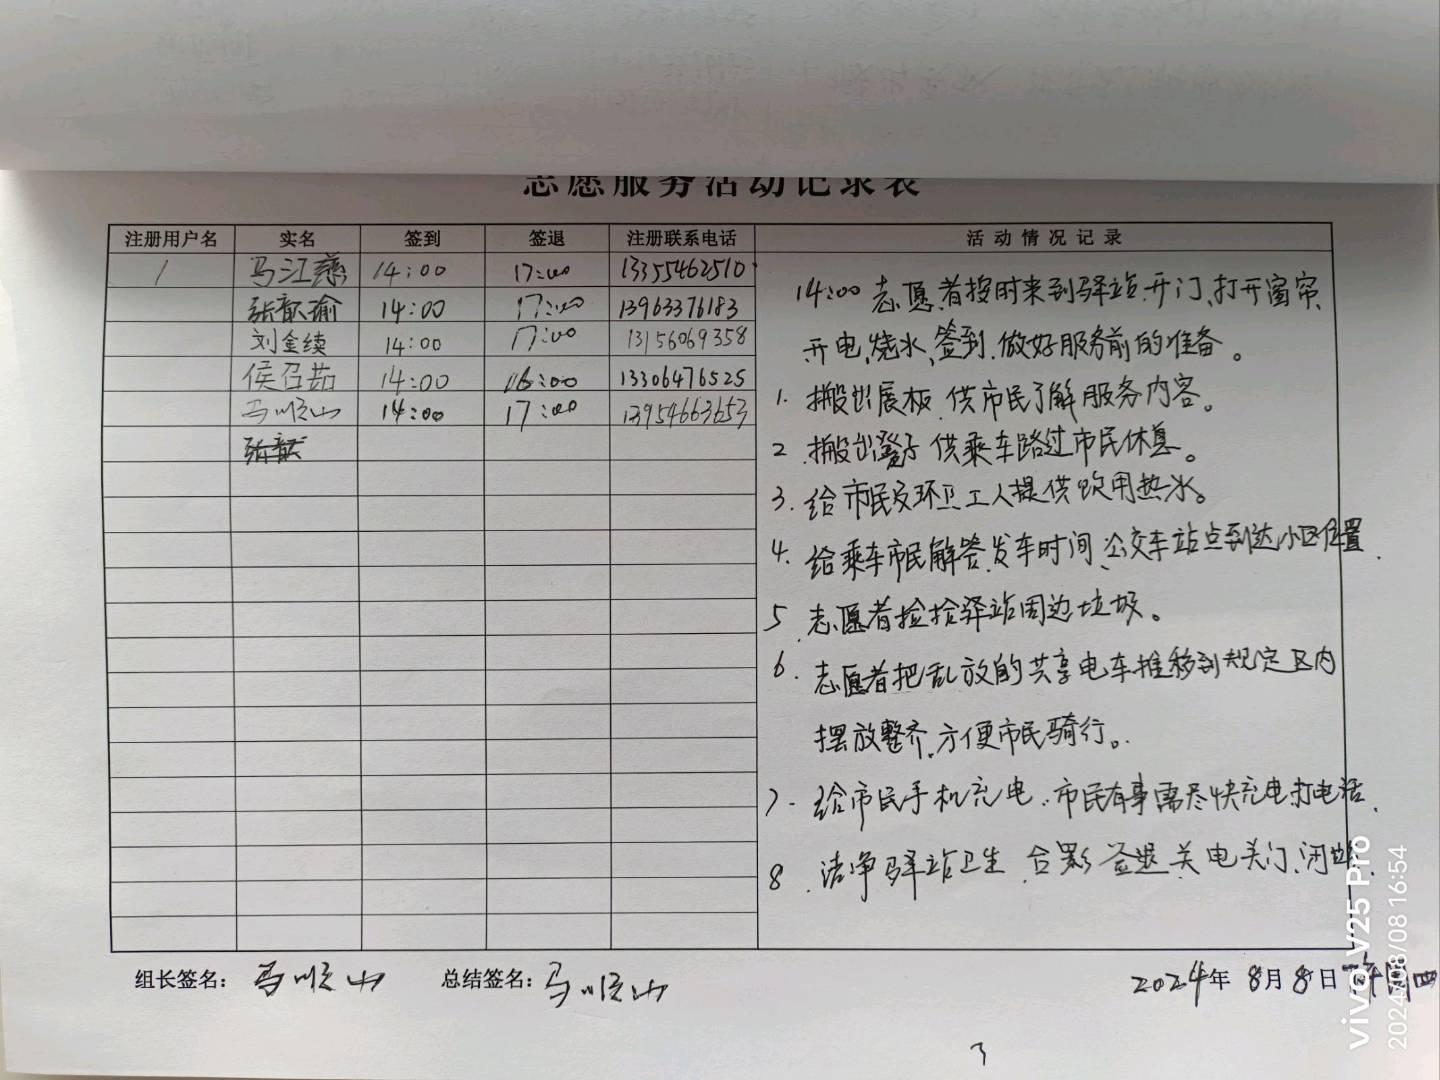 志愿服务活动记录表
注册用户名 实名 签到 签退 注册联系电话 活动情况记录
1 马江慈 14:00 17:00 13355462510
张歆瑜 14:00 17:00 13963376183
刘金续 14:00 17:00 13156069358
侯召茹 14:00 16:00 13306476525
马顺山 14:00 17:00 13954663653
14:00 志愿者按时来到驿站.开门、打开窗帘、
开电、烧水、签到.做好服务前的准备。
1. 搬出展板.供市民了解服务内容。
2. 搬出凳子供乘车路过市民休息。
3. 给市民及环卫工人提供饮用热水。
4. 给乘车市民解答发车时间、公交车站点到达小区位置.
5. 志愿者捡拾驿站周边垃圾。
6. 志愿者把乱放的共享电车推移到规定区内
摆放整齐.方便市民骑行。
7. 给市民手机充电.市民有事需尽快充电打电话.
8. 洁净驿站卫生.合影 签退 关电关门、闭
组长签名：马顺山 总结签名：马顺山 2024年8月8日
3
vivo V25 Pro
2024/08/08 16:54